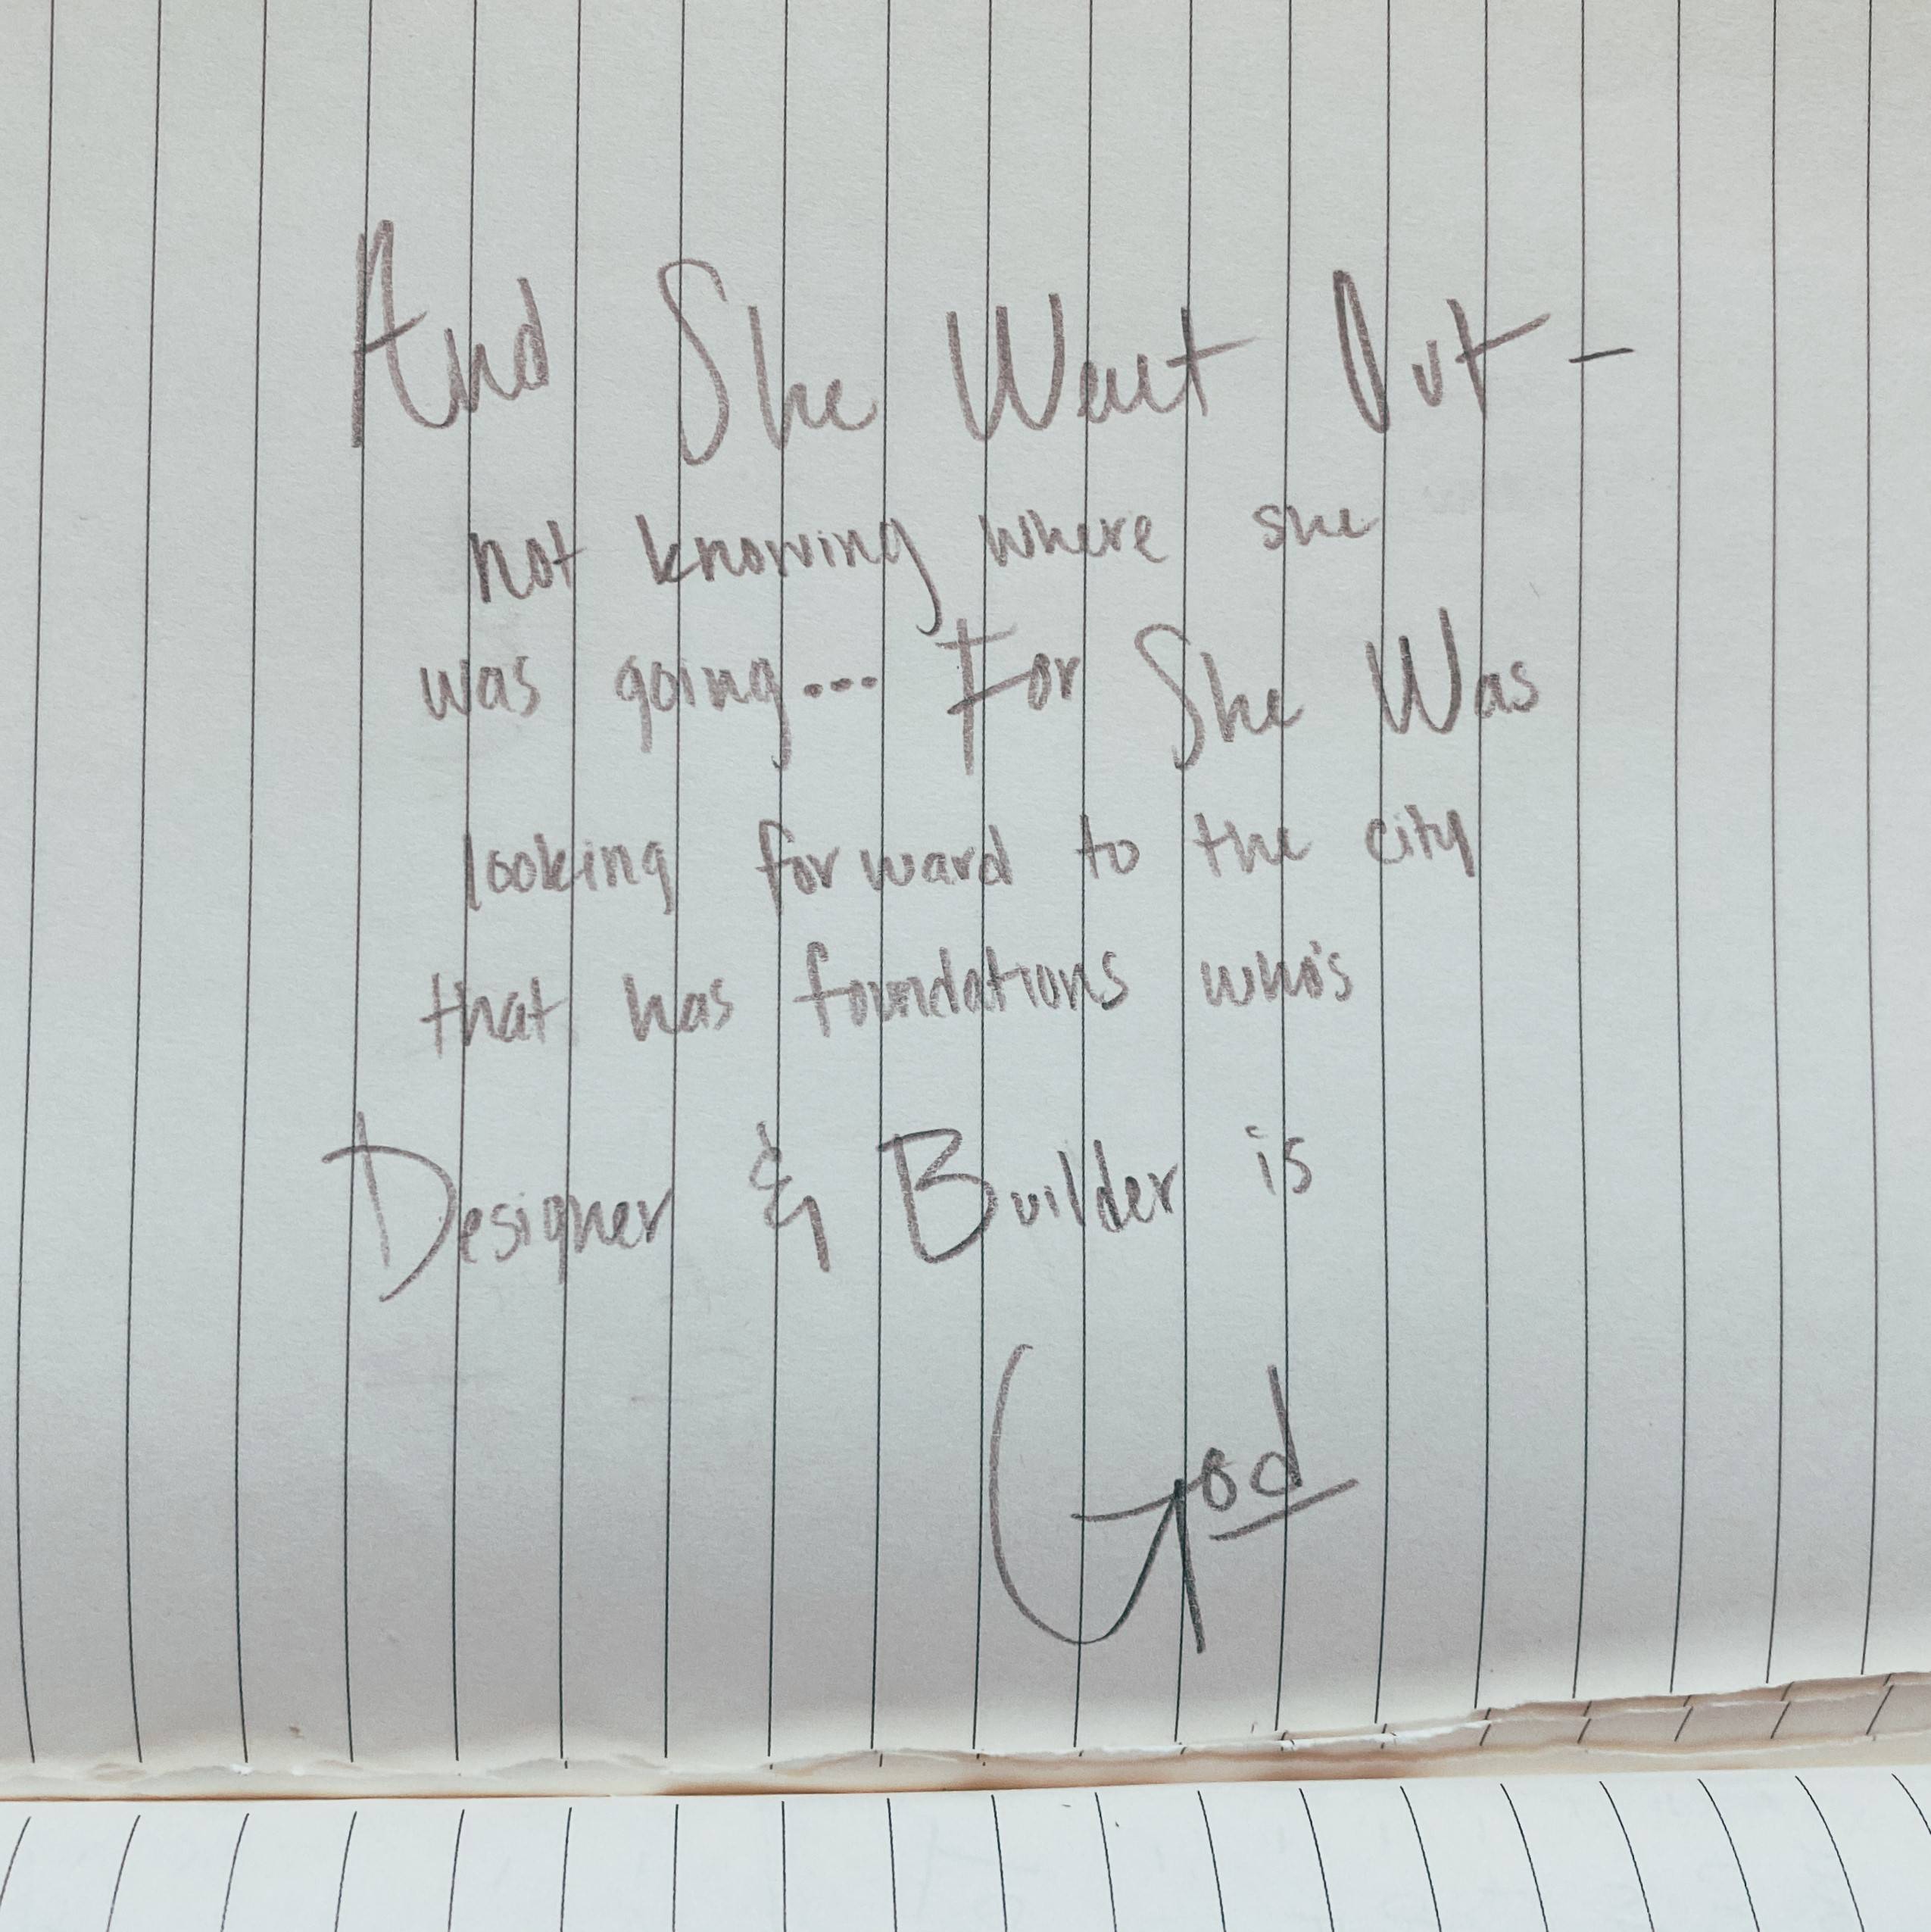 And She Went Out -
not knowing where she
was going... For She Was
looking forward to the city
that has foundations who's
Designer & Builder is
God